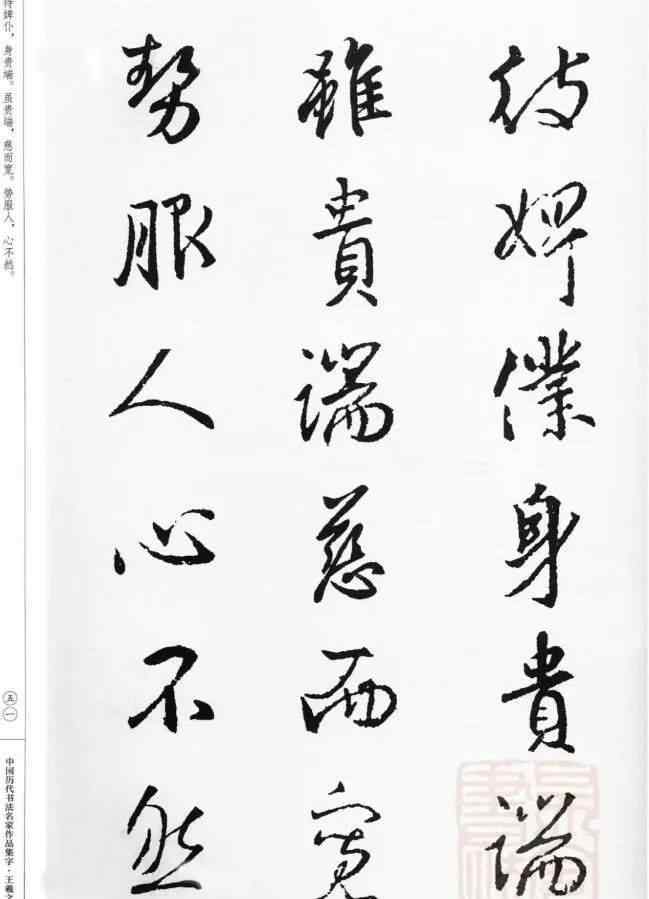 待婢僕身貴端
雖貴端慈而寬
勢服人心不然
待婢仆，身贵端。虽贵端，慈而宽。势服人，心不然。
五一
中国历代书法名家作品集字·王羲之